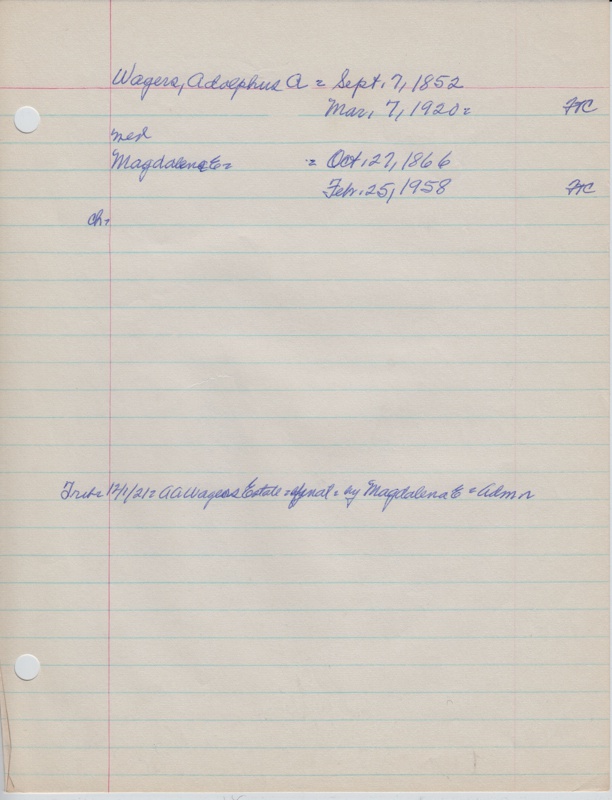 Wagers, Adolphus A = Sept. 7, 1852
Mar. 7, 1920 = FTC
med
Magdalena E = = Oct. 27, 1866
Febr. 25, 1958 FTC
ch.
Trib = 12/1/21 = AA Wagers Estate = final = by Magdalena E = Admr